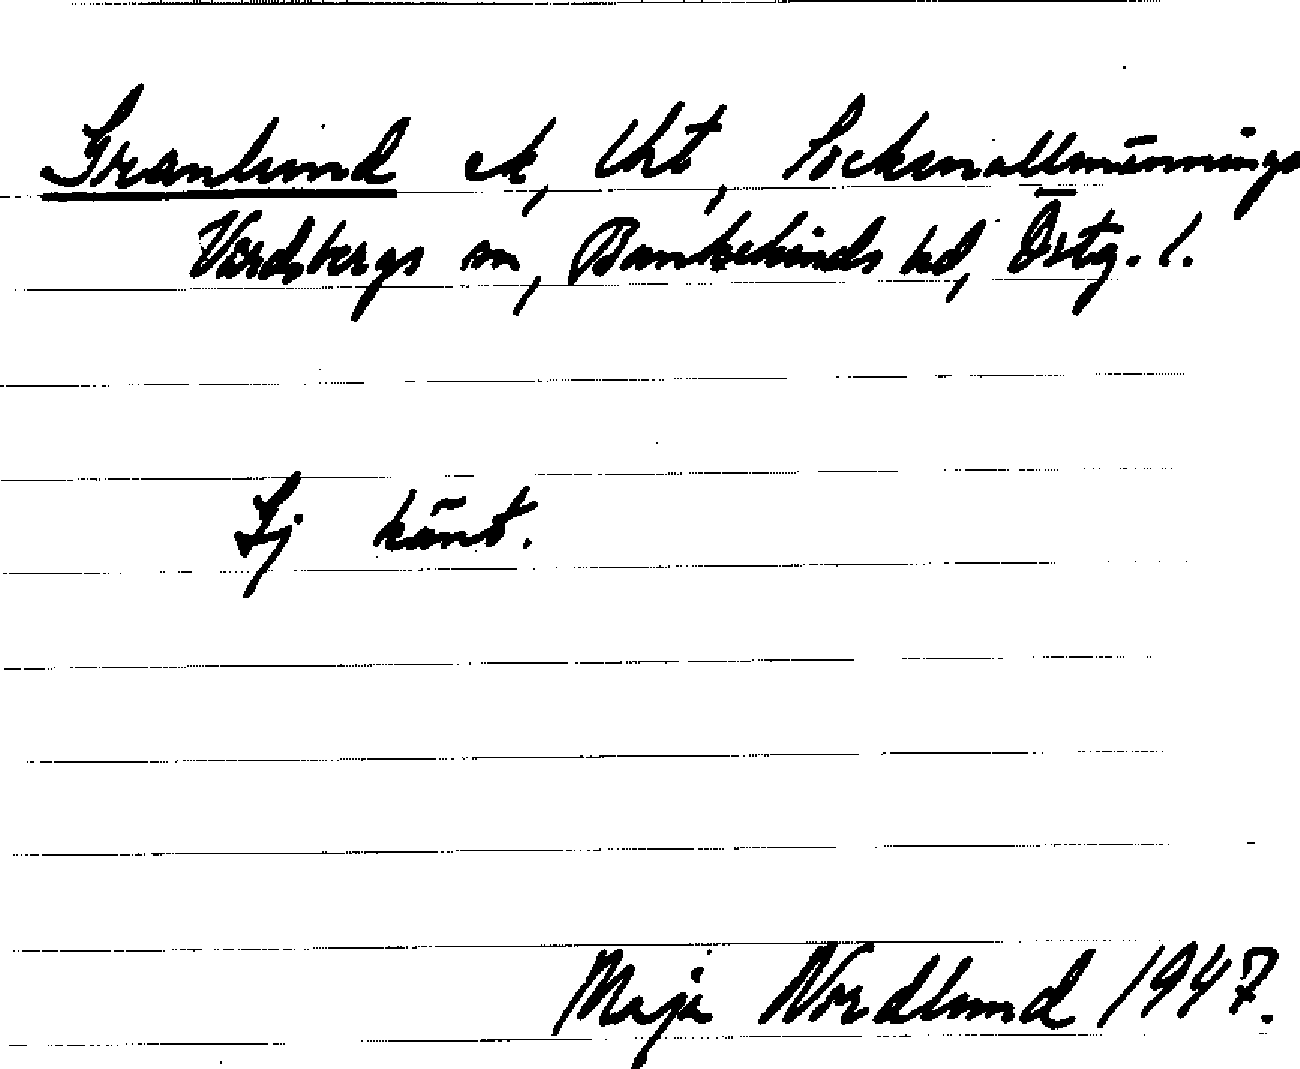 Granlund ek, tkt, Sockenallmännings
Vårdsbergs sn, Bankekinds hd, Östg. l.
Ej känt.
Maja Nordlund 1947.